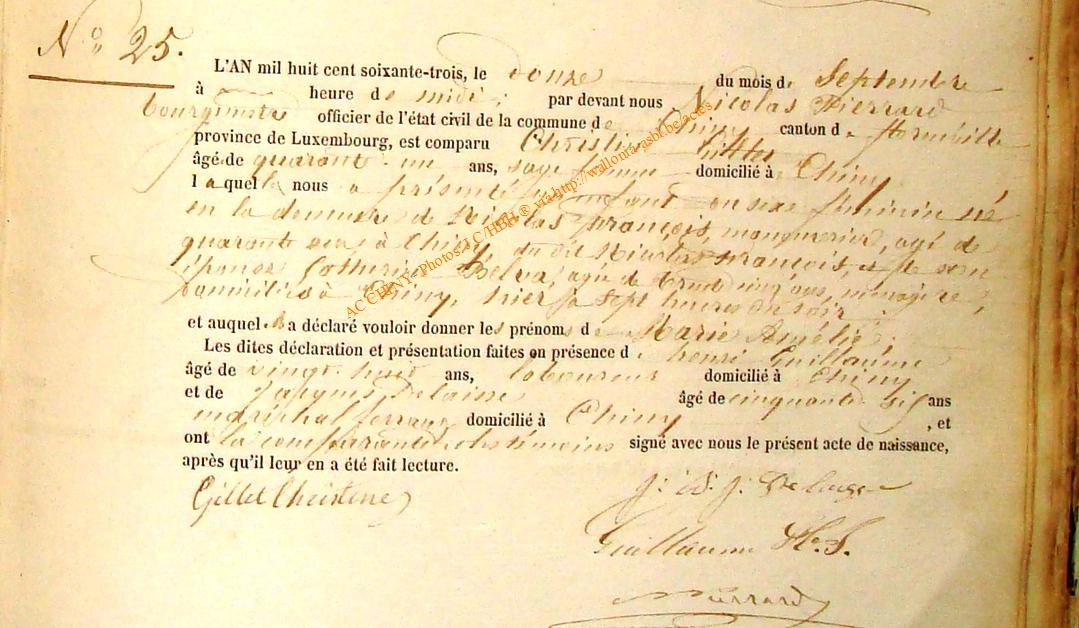 N° 25.
L'AN mil huit cent soixante-trois, le douze du mois de Septembre
à heure de midi; par devant nous Nicolas Pierrard
bourgmestre officier de l'état civil de la commune de Chiny canton de
province de Luxembourg, est comparu Gillet
âgé de quarante un ans, sage femme domicilié à Chiny
laquelle nous a présenté un enfant du sexe féminin né
en la demeure de Nicolas François, âgé de
quarante ans à Chiny, du dit Nicolas François, et de son
épouse âgée de ans, ménagère,
domiciliés à Chiny, hier à sept heures du soir
et auquel a déclaré vouloir donner les prénoms de Marie Amélie;
Les dites déclaration et présentation faites en présence de henri Guillaume
âgé de vingt huit ans, laboureur domicilié à Chiny
et de Jacques âgé de cinquante six ans
maréchal ferrant domicilié à Chiny , et
ont la comparante et les témoins signé avec nous le présent acte de naissance,
après qu'il leur en a été fait lecture.
Gillet Christine
Guillaume
Pierrard
AC CHINY - Photos AC/HBH ® via http://wallonia-asbl.be/actes